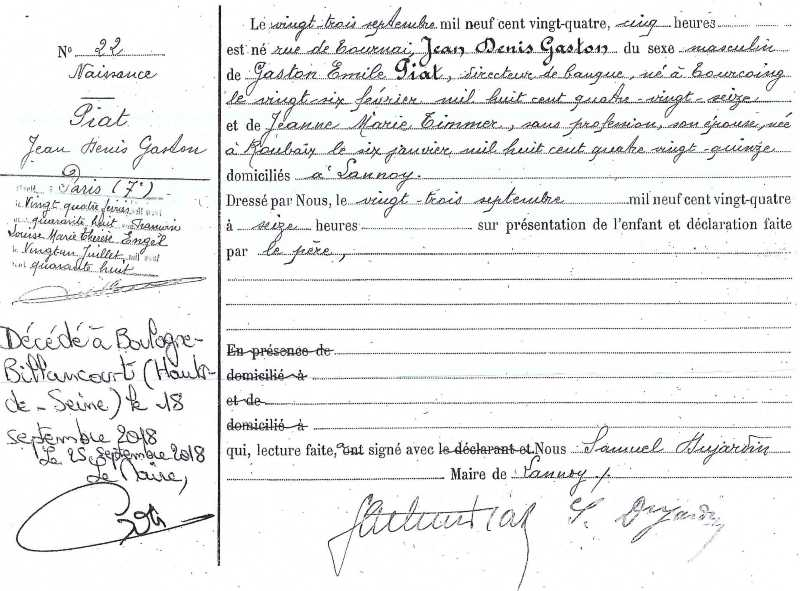 N° 22
Naissance
Piat
Jean Denis Gaston
Paris (7e)
Vingt quatre février
quarante huit
Louise Marie Thérèse Engel
le Vingt un Juillet, mil neuf
cent quarante huit
Décédé à Boulogne-
Billancourt (Hauts-
de-Seine) le 18
septembre 2018
Le 25 septembre 2018
Le Maire,
Le vingt-trois septembre mil neuf cent vingt-quatre, cinq heures
est né rue de Tournai, Jean Denis Gaston du sexe masculin
de Gaston Emile Piat, directeur de banque, né à Tourcoing
le vingt-six février mil huit cent quatre-vingt-seize
et de Jeanne Marie Timmer, sans profession, son épouse, née
à Roubaix le six janvier mil huit cent quatre vingt-quinze
domiciliés à Lannoy.
Dressé par Nous, le vingt-trois septembre mil neuf cent vingt-quatre
à seize heures sur présentation de l'enfant et déclaration faite
par le père,
En présence de
domicilié à
et de
domicilié à
qui, lecture faite, ont signé avec le déclarant et Nous Samuel Dujardin
Maire de Lannoy.
S. Dujardin